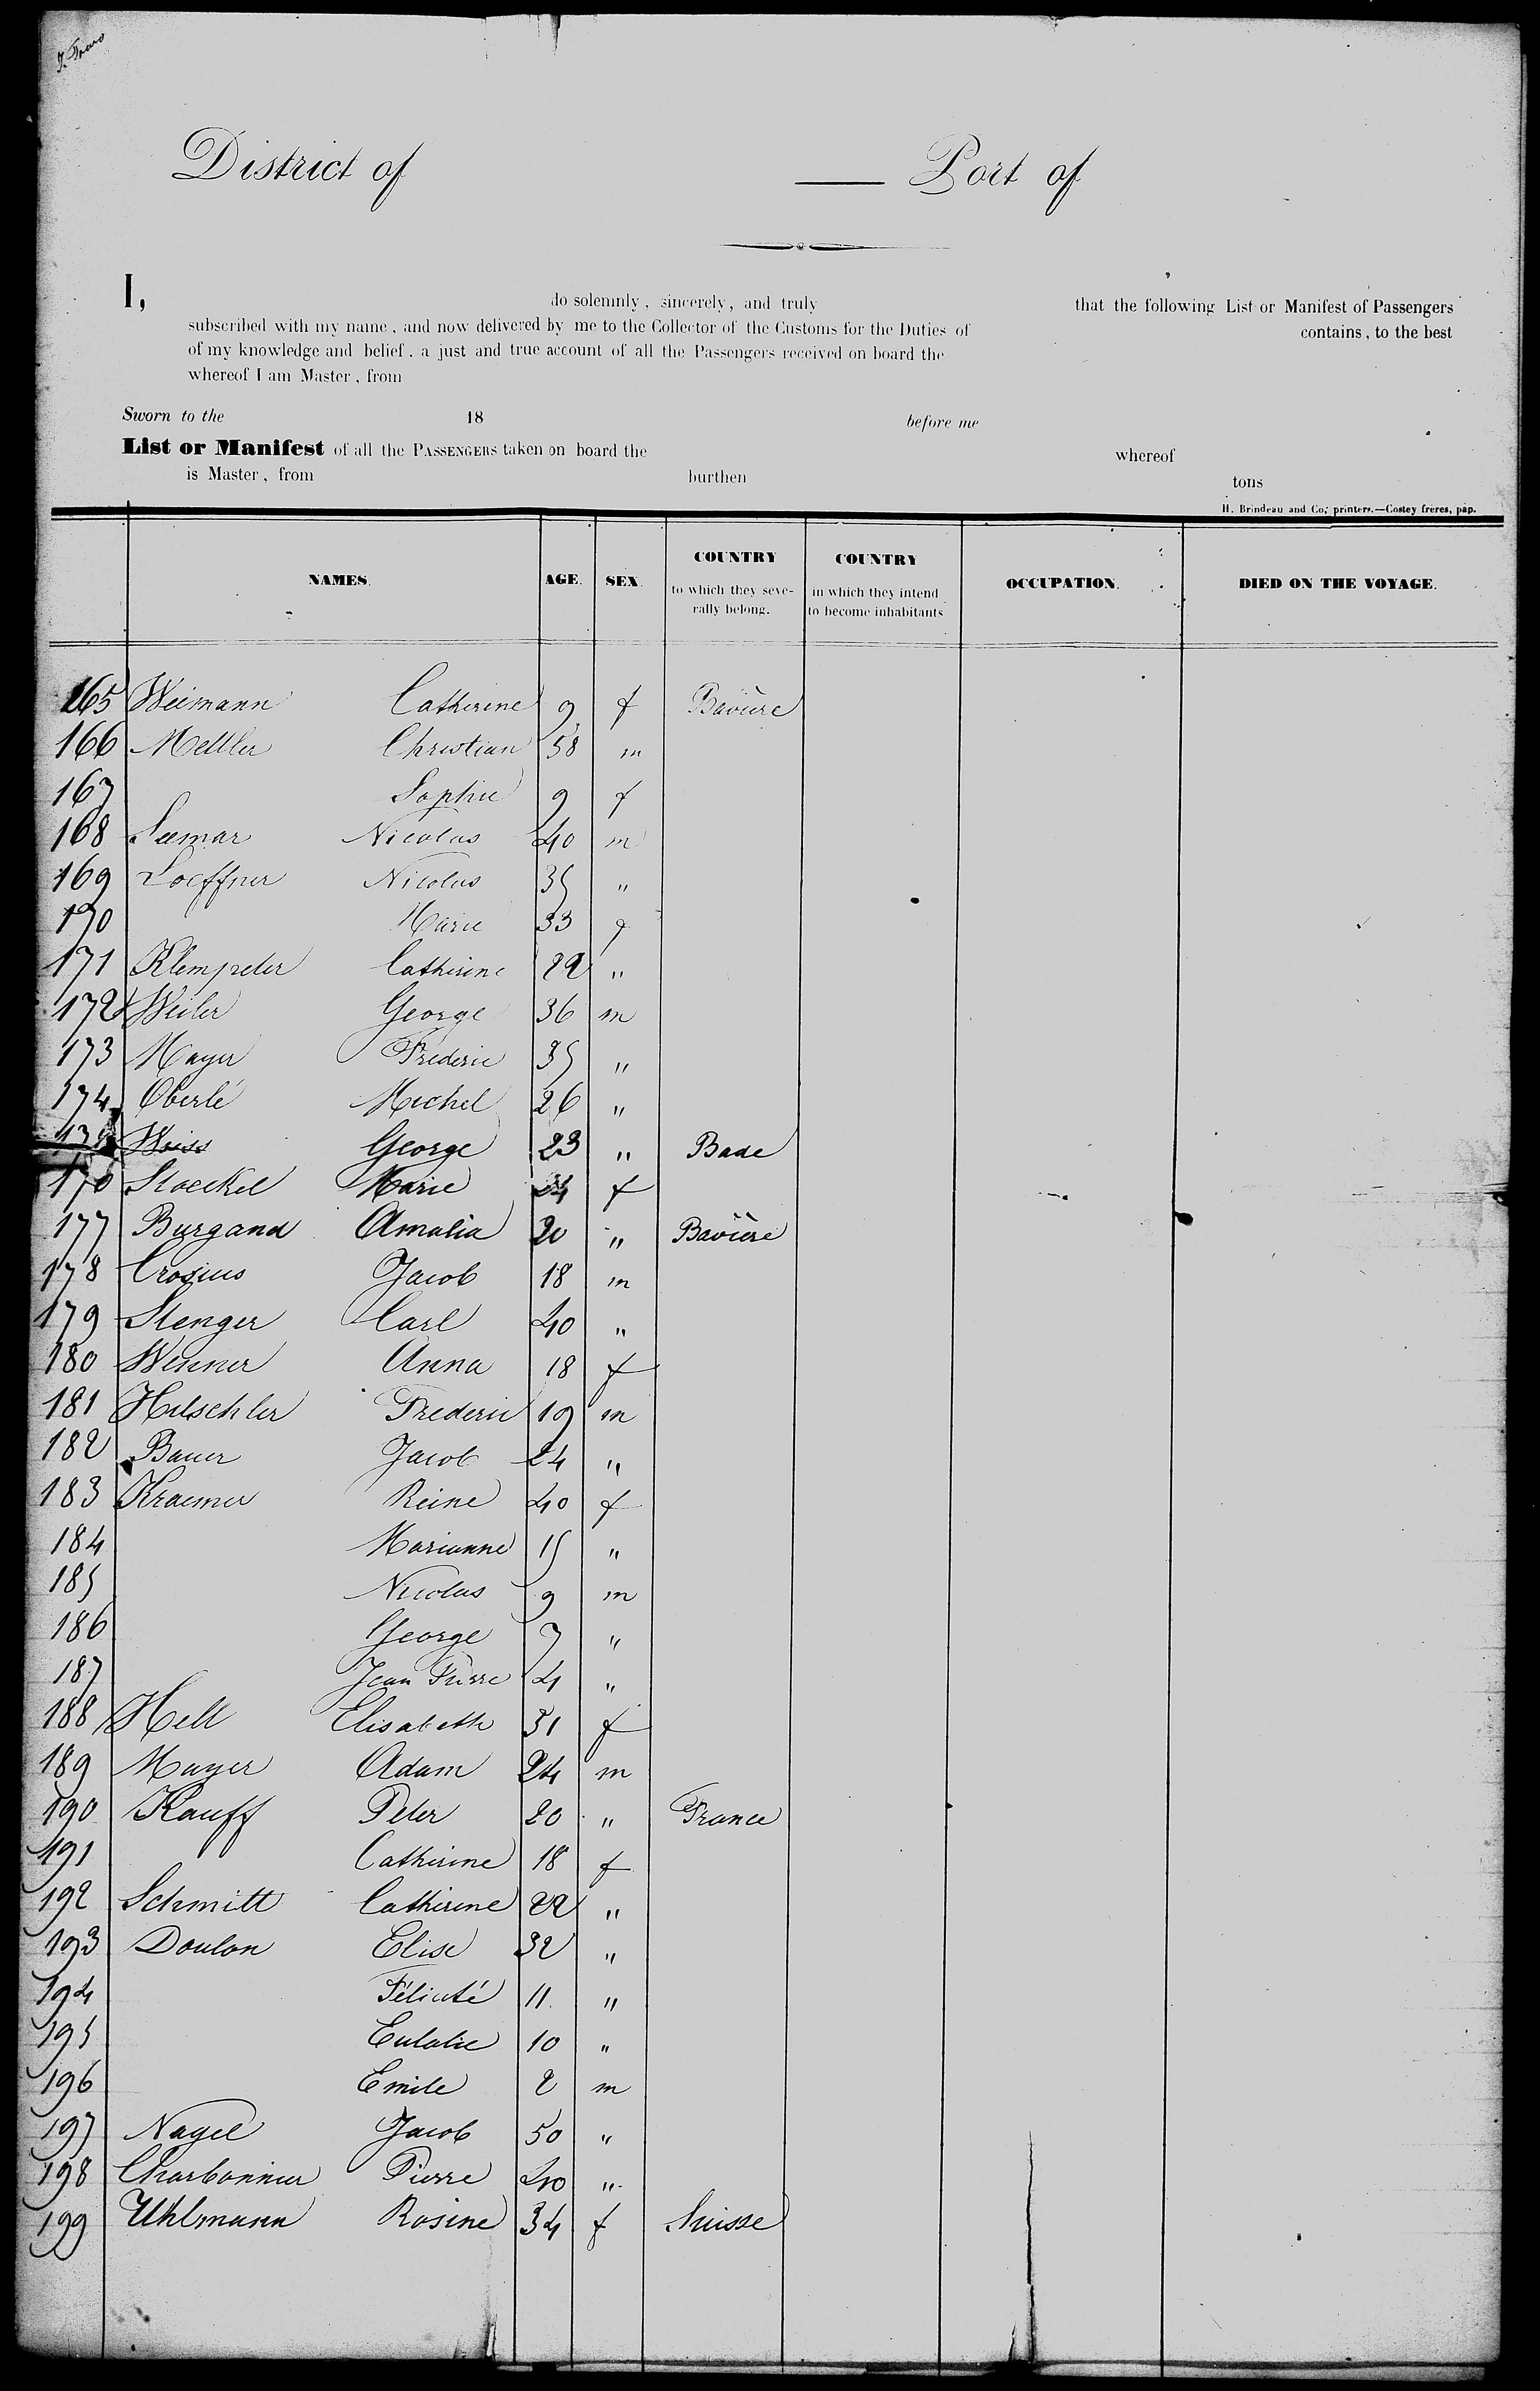 District of — Port of
I, do solemnly, sincerely, and truly that the following List or Manifest of Passengers
subscribed with my name, and now delivered by me to the Collector of the Customs for the Duties of contains, to the best
of my knowledge and belief, a just and true account of all the Passengers received on board the
whereof I am Master, from
Sworn to the 18 before me
List or Manifest of all the PASSENGERS taken on board the whereof
is Master, from burthen tons
H. Brindeau and Co, printers.—Costey frères, pap.
NAMES. AGE. SEX. COUNTRY to which they seve-rally belong. COUNTRY in which they intend to become inhabitants OCCUPATION. DIED ON THE VOYAGE.
165 Weimann Catherine 9 f Bavière
166 Mettler Christian 58 m
167 Sophie 9 f
168 Leemar Nicolas 40 m
169 Loeffner Nicolas 35 "
170 Marie 33 f
171 Klempeter Catherine 22 "
172 Weiler George 36 m
173 Mayer Frederic 35 "
174 Oberlé Michel 26 "
175 Weiss George 23 " Bade
176 Stoeckel Marie 24 f
177 Burgand Amalia 20 " Bavière
178 Crosius Jacob 18 m
179 Stenger Carl 40 "
180 Wenner Anna 18 f
181 Hutschler Frederic 19 m
182 Bauer Jacob 24 "
183 Kraemer Reine 40 f
184 Marianne 15 "
185 Nicolas 9 m
186 George 7 "
187 Jean Pierre 4 "
188 Hell Elisabeth 31 f
189 Mayer Adam 24 m
190 Kauff Peter 20 " France
191 Catherine 18 f
192 Schmitt Catherine 22 "
193 Doulon Elise 32 "
194 Félicité 11 "
195 Eulalie 10 "
196 Emile 2 m
197 Nagel Jacob 50 "
198 Charbonnier Pierre 40 "
199 Uhlmann Rosine 34 f Suisse